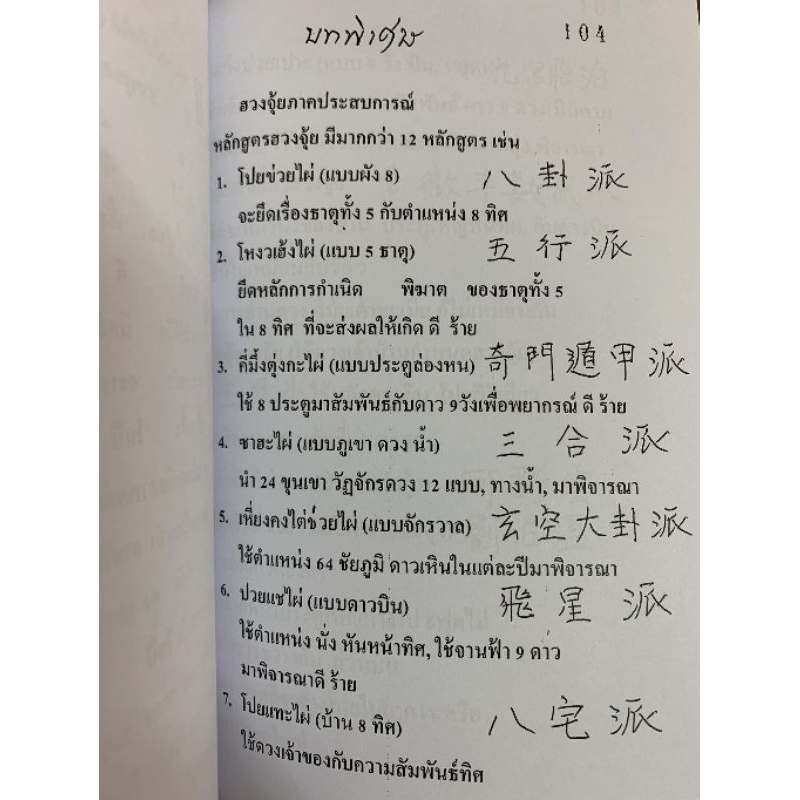 บทพิเศษ 104
ฮวงจุ้ยภาคประสบการณ์
หลักสูตรฮวงจุ้ย มีมากกว่า 12 หลักสูตร เช่น
1. โปยข่วยไผ่ (แบบผัง 8) 八卦派
จะยึดเรื่องธาตุทั้ง 5 กับตำแหน่ง 8 ทิศ
2. โหงวเฮ้งไผ่ (แบบ 5 ธาตุ) 五行派
ยึดหลักการกำเนิด พิฆาต ของธาตุทั้ง 5
ใน 8 ทิศ ที่จะส่งผลให้เกิด ดี ร้าย
3. กี่มึ้งตุ่งกะไผ่ (แบบประตูล่องหน) 奇門遁甲派
ใช้ 8 ประตูมาสัมพันธ์กับดาว 9วังเพื่อพยากรณ์ ดี ร้าย
4. ซาฮะไผ่ (แบบภูเขา ดวง น้ำ) 三合派
นำ 24 ขุนเขา วัฏจักรดวง 12 แบบ, ทางน้ำ, มาพิจารณา
5. เหี่ยงคงไต่ช่วยไผ่ (แบบจักรวาล) 玄空大卦派
ใช้ตำแหน่ง 64 ชัยภูมิ ดาวเหินในแต่ละปีมาพิจารณา
6. ปวยแชไผ่ (แบบดาวบิน) 飛星派
ใช้ตำแหน่ง นั่ง หันหน้าทิศ, ใช้จานฟ้า 9 ดาว
มาพิจารณาดี ร้าย
7. โปยแทะไผ่ (บ้าน 8 ทิศ) 八宅派
ใช้ดวงเจ้าของกับความสัมพันธ์ทิศ